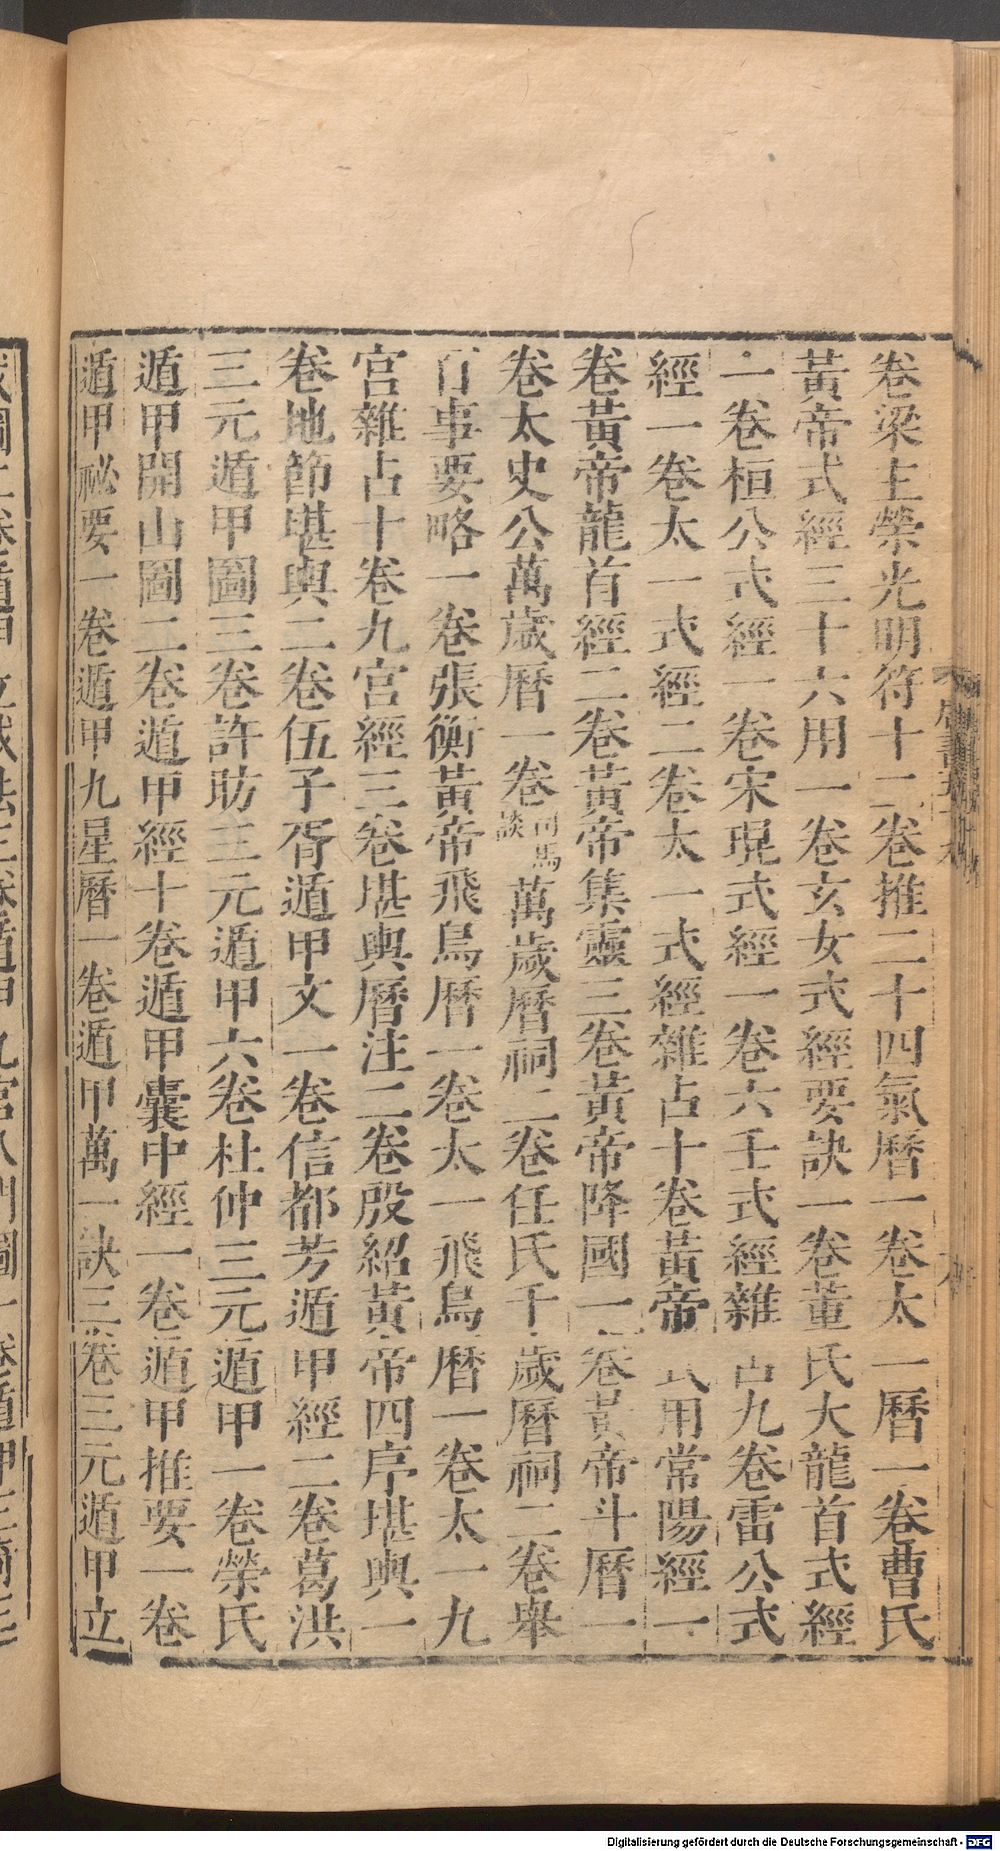 卷梁主榮光明符十二卷推二十四氣曆一卷太一曆一卷曹氏
黃帝式經三十六用一卷玄女式經要訣一卷董氏大龍首式經
一卷桓公式經一卷宋琨式經一卷六壬式經雜占九卷雷公式
經一卷太一式經二卷太一式經雜占十卷黃帝式用常陽經一
卷黃帝龍首經二卷黃帝集靈三卷黃帝降國一卷黃帝斗曆一
卷太史公萬歲曆一卷司馬談萬歲曆祠二卷任氏千歲曆祠二卷舉
百事要略一卷張衡黃帝飛鳥曆一卷太一飛鳥曆一卷太一九
宮雜占十卷九宮經三卷堪輿曆注二卷殷紹黃帝四序堪輿一
卷地節堪輿二卷伍子胥遁甲文一卷信都芳遁甲經二卷葛洪
三元遁甲圖三卷許昉三元遁甲六卷杜仲三元遁甲一卷榮氏
遁甲開山圖二卷遁甲經十卷遁甲囊中經一卷遁甲推要一卷
遁甲祕要一卷遁甲九星曆一卷遁甲萬一訣三卷三元遁甲立
Digitalisierung gefördert durch die Deutsche Forschungsgemeinschaft - DFG